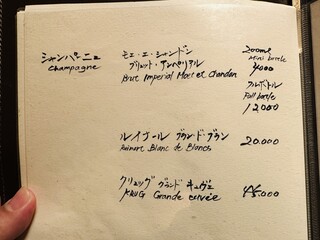 シャンパーニュ
Champagne
モエ・エ・シャンドン
ブリュット・アンペリアル
Brut Imperial Moet et Chandon
200ml
Mini bottle
4000
フルボトル
Full bottle
12,000
ルイナール ブランドブラン
Ruinart Blanc de Blancs
20.000
クリュッグ グランド キュヴェ
KRUG Grande cuvée